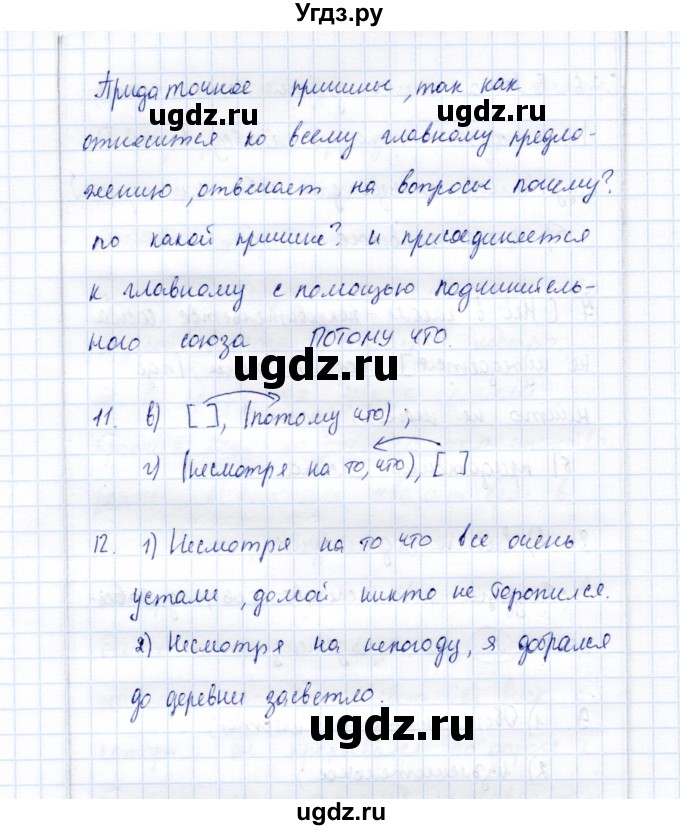 Угдз.ру
Придаточное причины, так как
ugdz.ru ugdz.ru
относится ко всему главному предло-
жению, отвечает на вопросы почему?
по какой причине? и присоединяется
к главному с помощью подчинитель-
ного союза ПОТОМУ ЧТО.
ugdz.ru
11. в) [ ], (потому что);
г) (несмотря на то, что), [ ]
ugdz.ru
12. 1) Несмотря на то что все очень
устали, домой никто не торопился.
2) Несмотря на непогоду, я добрался
до деревни засветло.
ugdz.ru
ugdz.ru